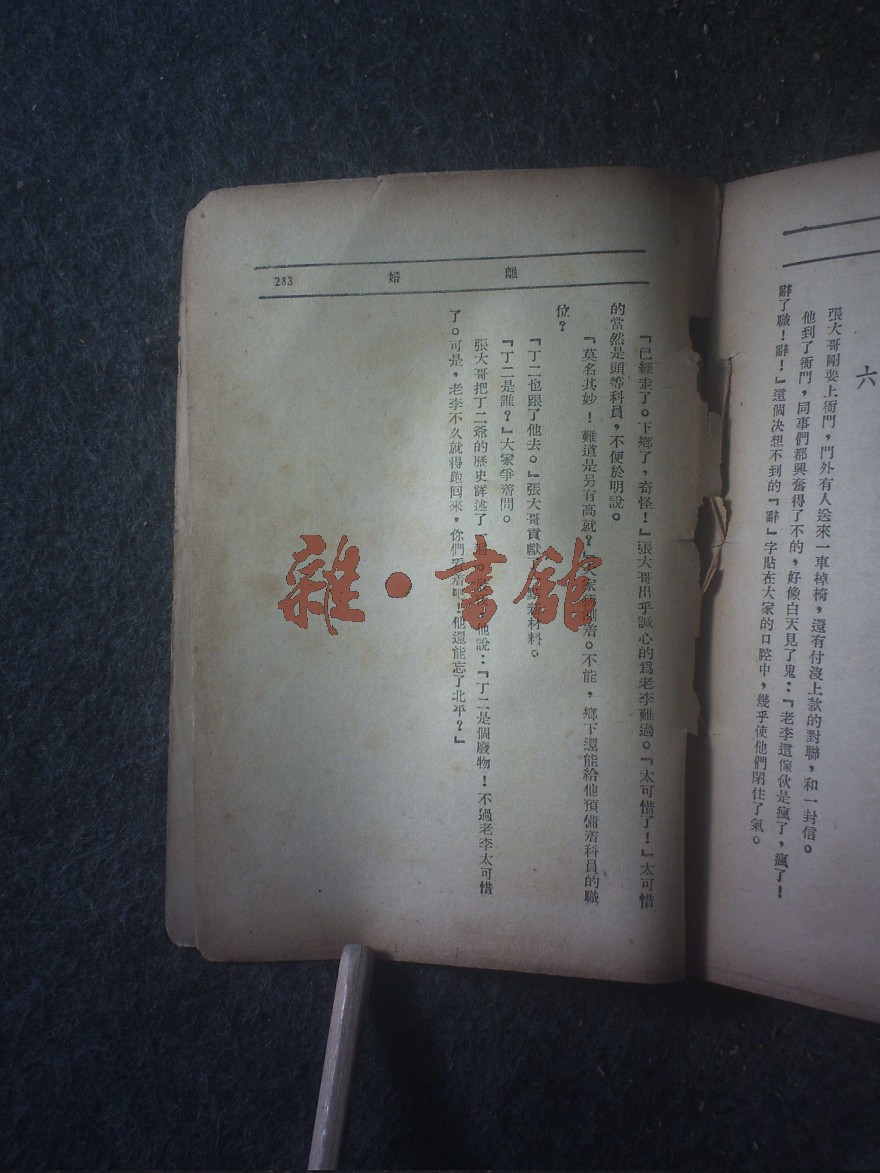 六
張大哥剛要上衙門，門外有人送來一車棹椅，還有付沒上款的對聯，和一封信。
他到了衙門，同事們都興奮得了不的，好像白天見了鬼：『老李這傢伙是瘋了，瘋了！
辭了職！辭！』這個决想不到的『辭』字貼在大家的口腔中，幾乎使他們閉住了氣。
離婚
283
『已經走了。下鄉了，奇怪！』張大哥出乎誠心的爲老李難過。『太可惜了！』太可惜
的當然是頭等科員，不便於明說。
『莫名其妙！難道是另有高就？』大家 着。不能，鄉下還能給他預備着科員的職
位？
『丁二也跟了他去。』張大哥貢獻 材料。
『丁二是誰？』大家爭着問。
張大哥把丁二爺的歷史詳述了一 他說：『丁二是個廢物！不過老李太可惜
了。可是，老李不久就得跑回來，你們看着吧！他還能忘了北平？』
雜·書館